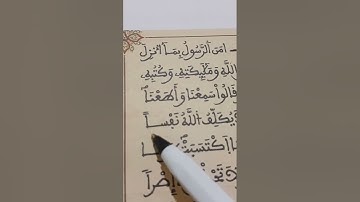 ءَامَنَ اَلرَّسُولُ بِمَآ أُنزِلَ
بِاللَّهِ وَمَلَٰٓئِكَتِهِۦ وَكُتُبِهِۦ
قَالُواْ سَمِعْنَا وَأَطَعْنَا
يُكَلِّفُ اُللَّهُ نَفْساً
مَا اَكْتَسَبَتْ
إِصْراً